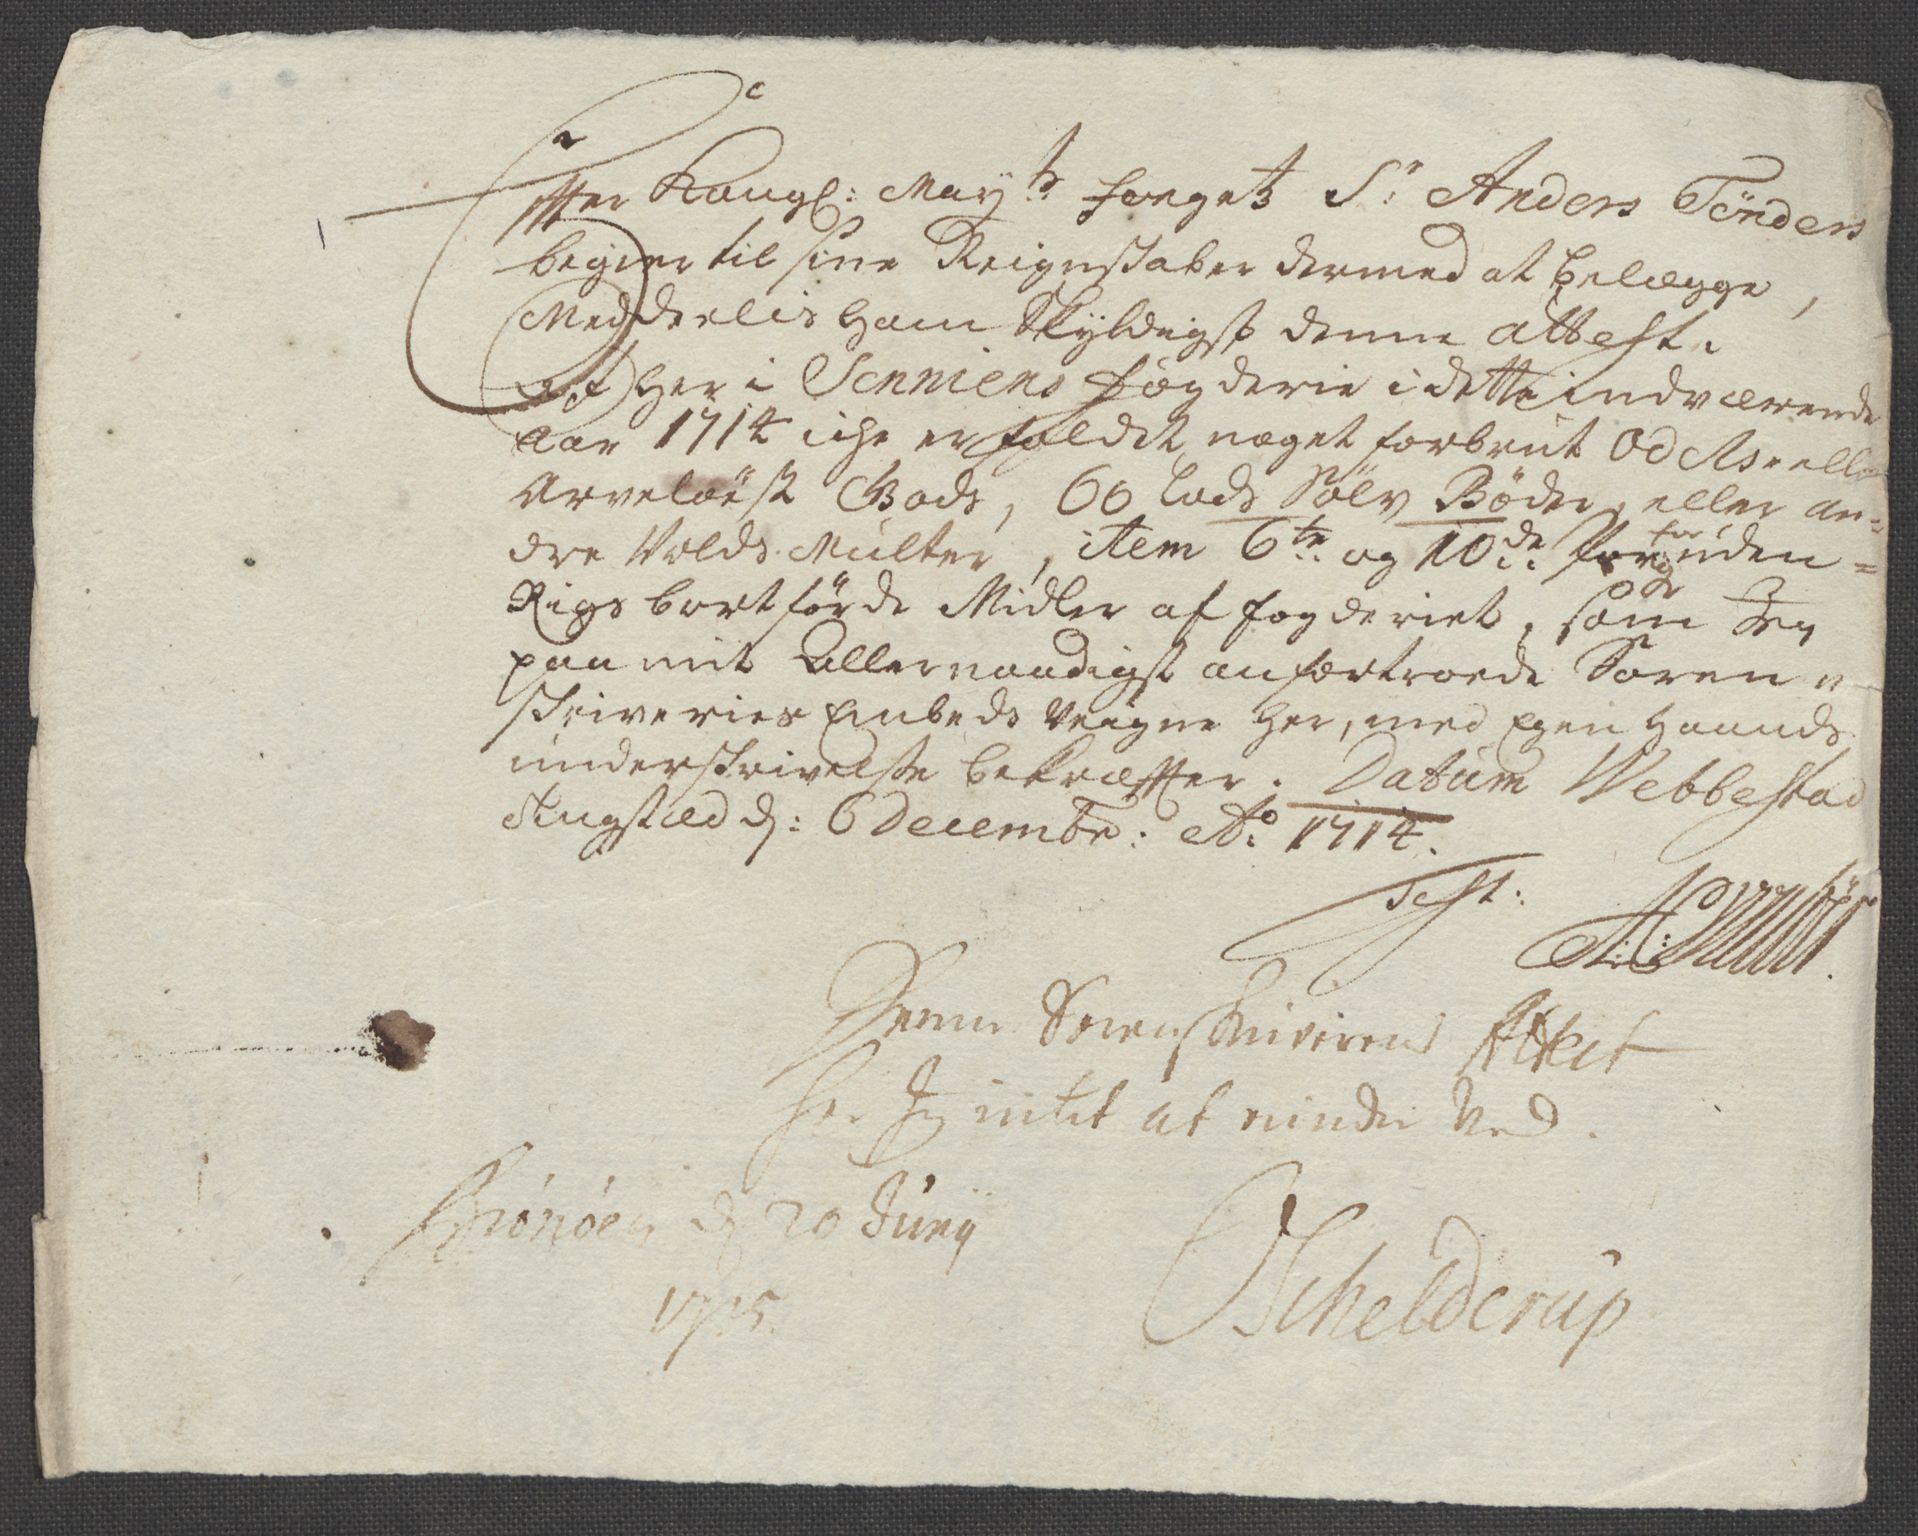 Effter Kongl: May.ts fogets Sr Anders Tönders
begier til sine Reignskaber dermed at belægge,
Meddeelis ham skyldigst denne attest.
At her i Senniens fögderie i dette indværende
aar 1714 iche er faldet noget forbrut Od Als eller
Arvelöist Gods, 60 Lods Sölv Böder, eller an-
dre Volds Multer, item 6te og 10de for uden-
Rigs bortförde Midler af fogderiet, som Jeg
paa mit Allernaadigst anfortroede Soren-
skriveries Embeds Veigne her, med Egen Haands
underskrivelse bekræffter. Datum Webbestad
tingstæd d: 6 Decembr: Ao 1714.
Test:
Denne Sorenskriverens Attest
har Jeg intet at minde Ved.
Brönöen d 20 Junij
1715.
OSchelderup